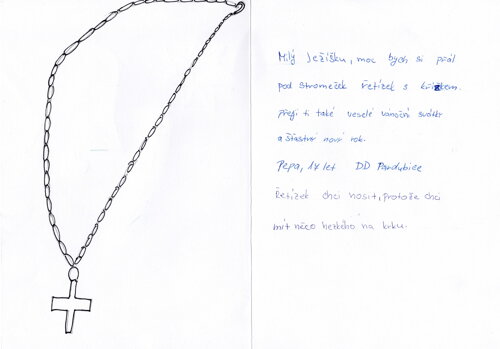 Milý Ježíšku, moc bych si přál
pod stromeček řetízek s křížkem.
Přeji ti také veselé vánoční svátky
a šťastný nový rok.
Pepa, 14 let DD Pardubice
Řetízek chci nosit, protože chci
mít něco hezkého na krku.